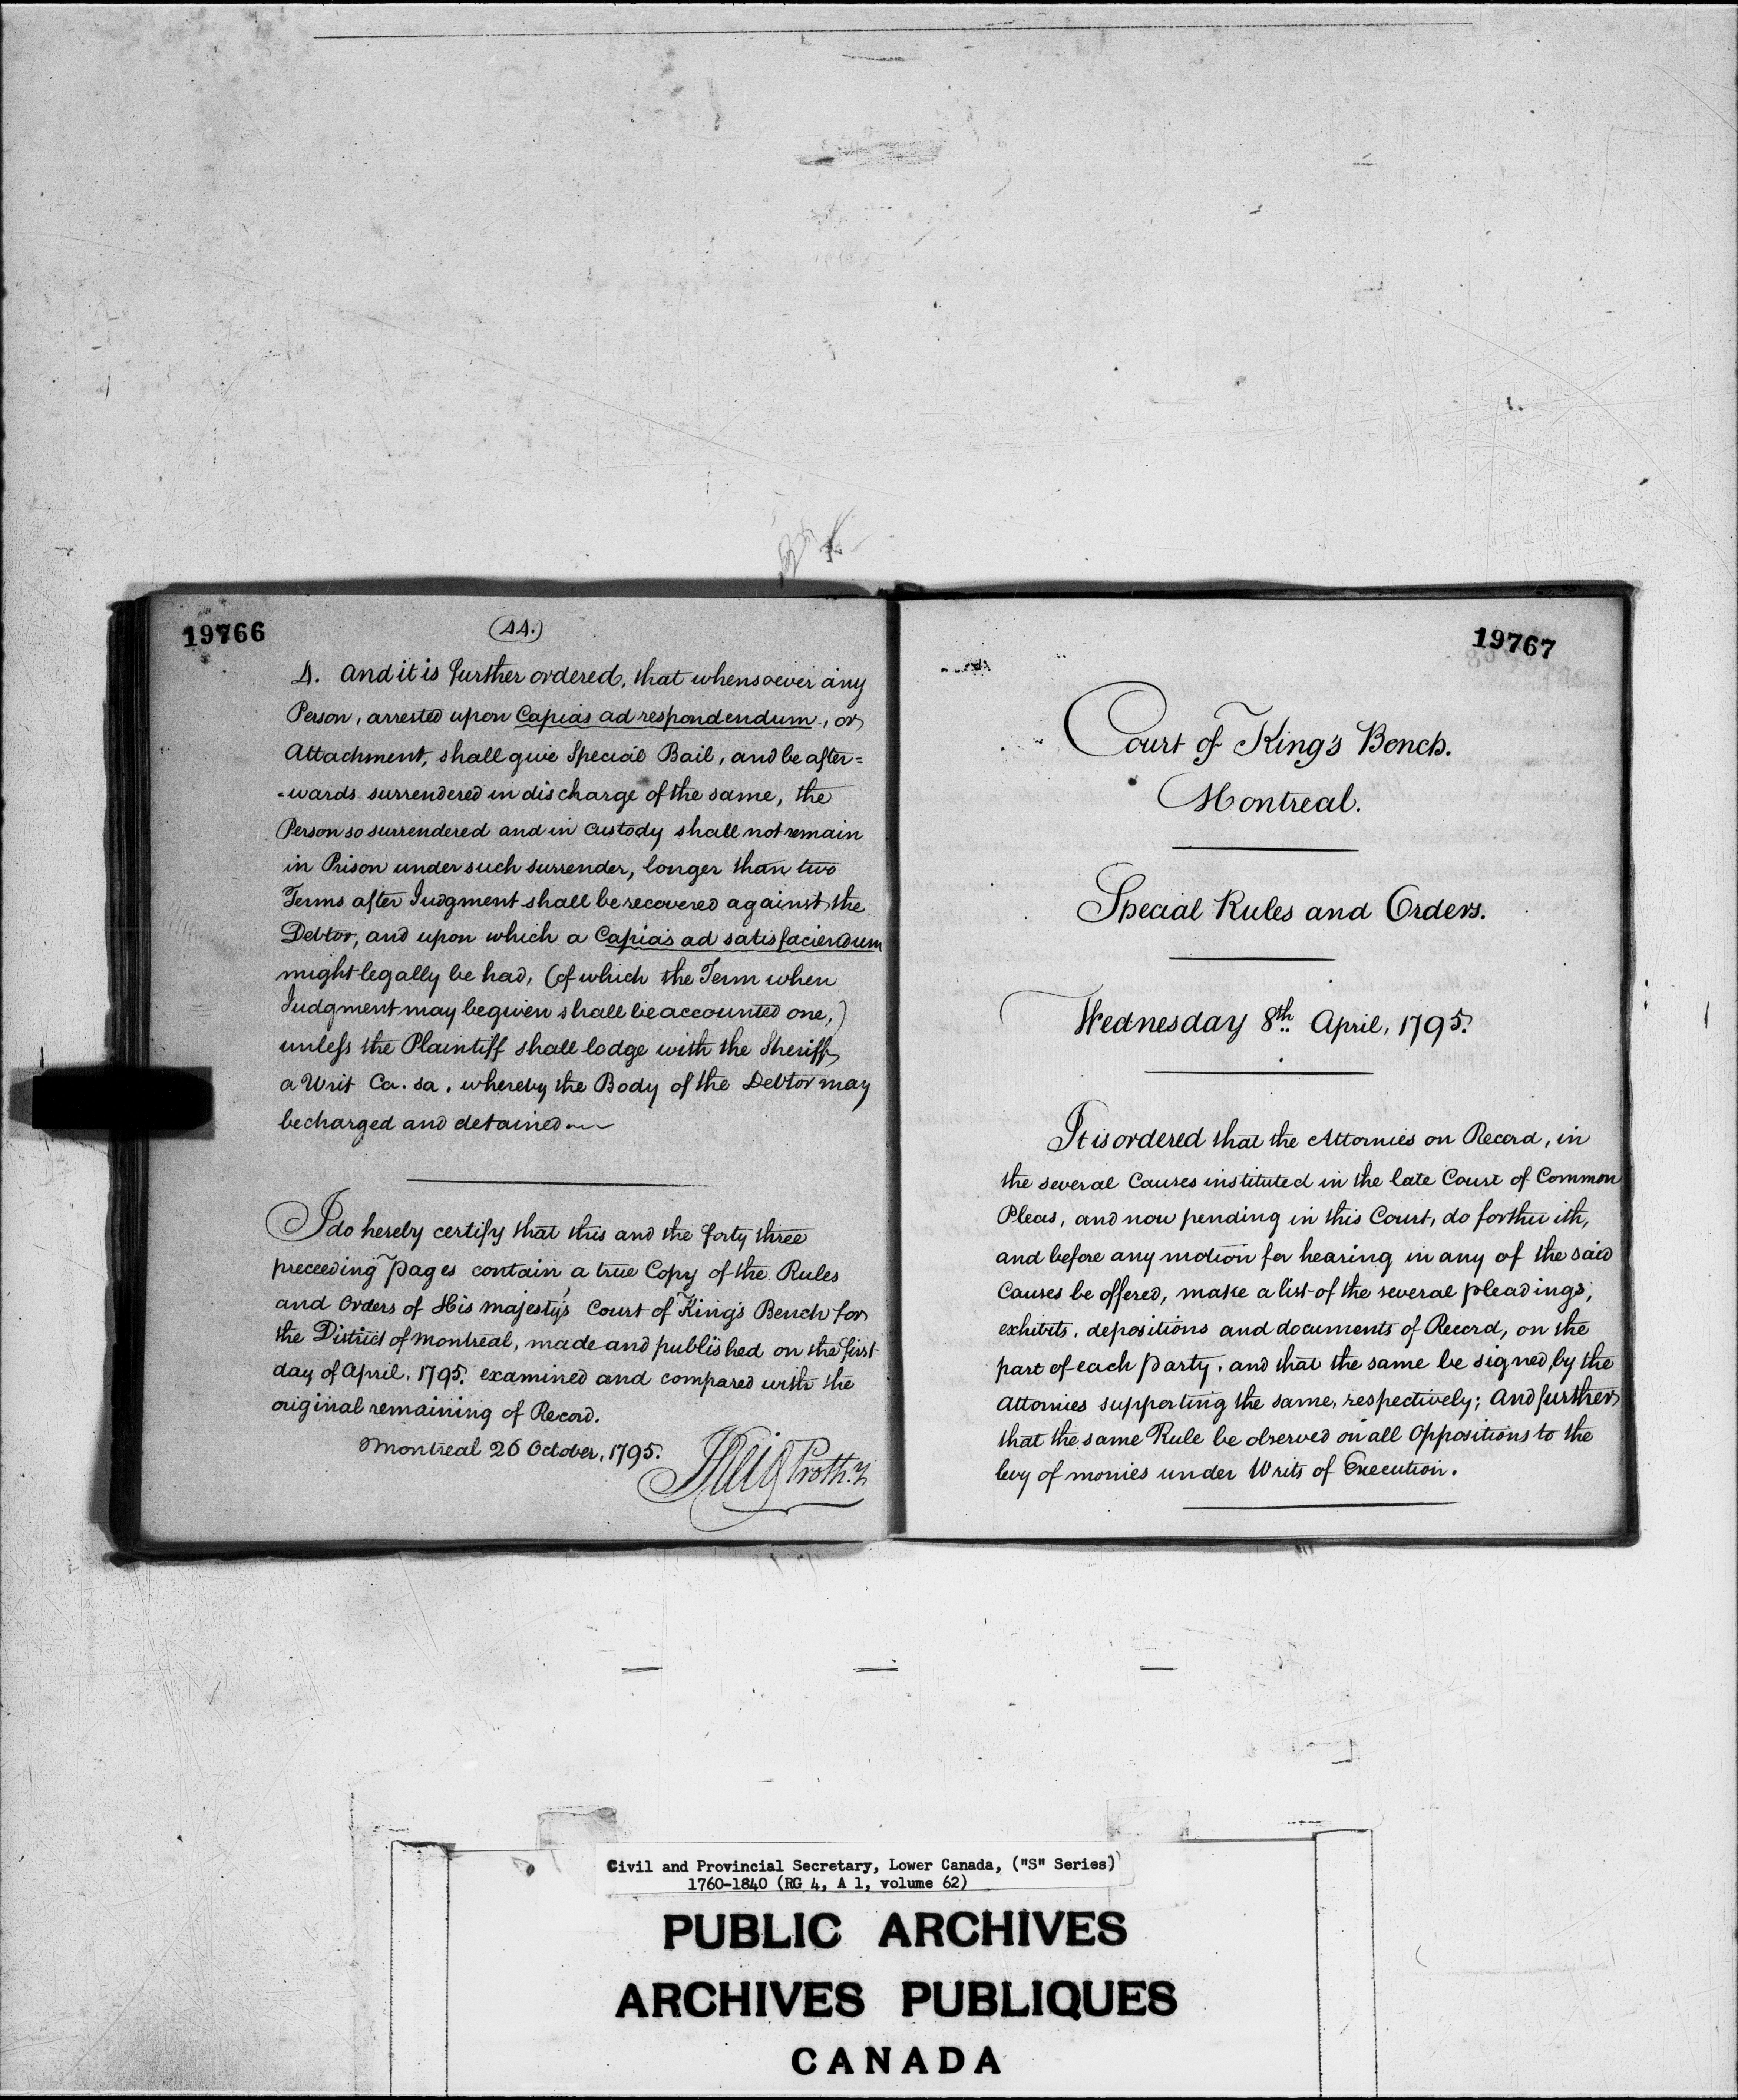 19766
(44.)
4. And it is further ordered, that whensoever any
Person, arrested upon Capias ad respondendum, or
Attachment, shall give Special Bail, and be after=
-wards surrendered in discharge of the same, the
Person so surrendered and in Custody shall not remain
in Prison under such surrender, longer than two
Terms after Judgment shall be recovered against the
Debtor, and upon which a Capias ad satisfaciendum
might legally be had, (of which the Term when
Judgment may be given shall be accounted one,)
unless the Plaintiff shall lodge with the Sheriff
a Writ Ca. sa. whereby the Body of the Debtor may
be charged and detained
I do hereby certify that this and the forty three
preceeding Pages contain a true Copy of the Rules
and Orders of His Majesty's Court of King's Bench for
the District of Montreal, made and published on the first
day of April, 1795, examined and compared with the
original remaining of Record.
Montreal 26 October, 1795.
JReid Proth.y
19767
Court of King's Bench.
Montreal.
Special Rules and Orders.
Wednesday 8th. April, 1795.
It is ordered that the Attornies on Record, in
the several Causes instituted in the late Court of Common
Pleas, and now pending in this Court, do forthwith,
and before any motion for hearing in any of the said
Causes be offered, make a list of the several pleadings,
exhibits, depositions and documents of Record, on the
part of each Party, and that the same be signed by the
Attornies supporting the same, respectively; And further
that the same Rule be observed on all Oppositions to the
levy of monies under Writs of Execution.
Civil and Provincial Secretary, Lower Canada, ("S" Series)
1760-1840 (RG 4, A 1, volume 62)
PUBLIC ARCHIVES
ARCHIVES PUBLIQUES
CANADA